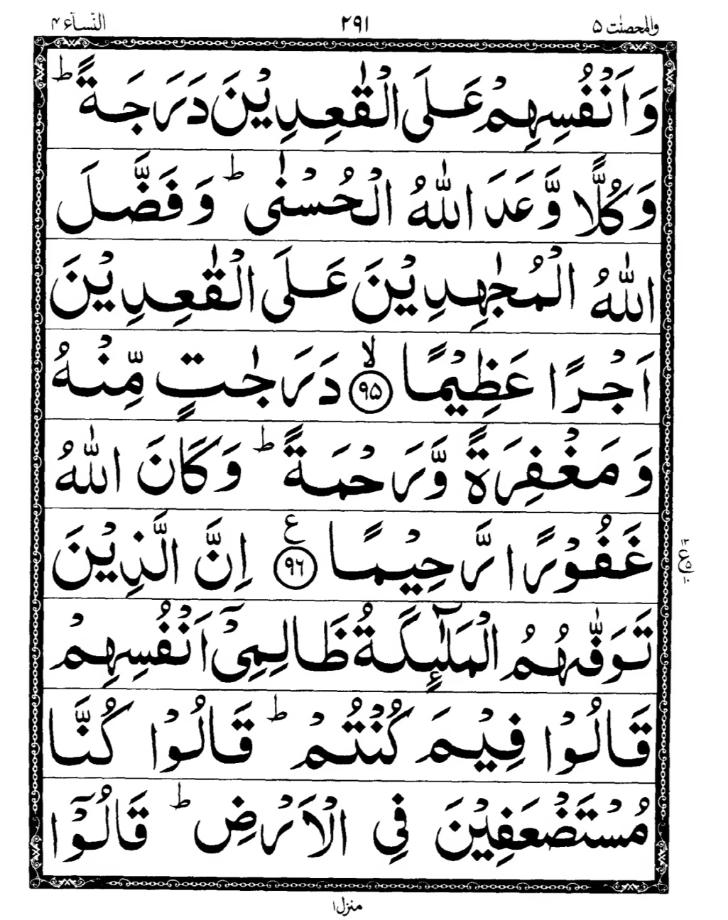 والمحصنٰت ۵ ۲۹۱ النّسآء ۴
وَاَنْفُسِهِمْ عَلَى الْقٰعِدِيْنَ دَرَجَةً ؕ
وَكُلًّا وَّعَدَ اللّٰهُ الْحُسْنٰى ؕ وَفَضَّلَ
اللّٰهُ الْمُجٰهِدِيْنَ عَلَى الْقٰعِدِيْنَ
اَجْرًا عَظِيْمًا ۙ ﴿۹۵﴾ دَرَجٰتٍ مِّنْهُ
وَمَغْفِرَةً وَّرَحْمَةً ؕ وَكَانَ اللّٰهُ
غَفُوْرًا رَّحِيْمًا ﴿۹۶﴾ ع اِنَّ الَّذِيْنَ
تَوَفّٰىهُمُ الْمَلٰٓئِكَةُ ظَالِمِيْٓ اَنْفُسِهِمْ
قَالُوْا فِيْمَ كُنْتُمْ ؕ قَالُوْا كُنَّا
مُسْتَضْعَفِيْنَ فِي الْاَرْضِ ؕ قَالُوْٓا
منزل ۱